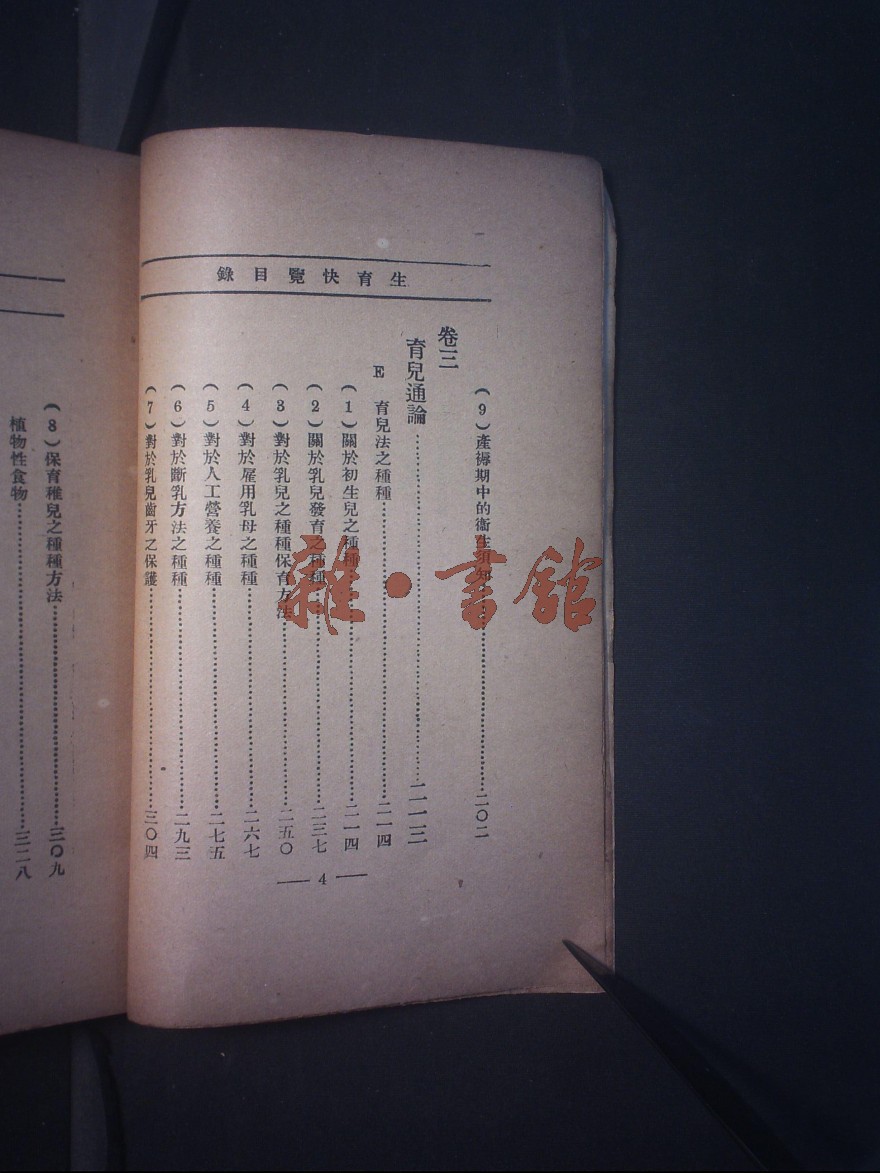 生育快覽目錄
(9)產褥期中的衞生須知……二〇二
卷三
育兒通論……二一三
E 育兒法之種種……二一四
(1)關於初生兒之種種……二一四
(2)關於乳兒發育之種種……二三七
(3)對於乳兒之種種保育方法……二五〇
(4)對於雇用乳母之種種……二六七
(5)對於人工營養之種種……二七五
(6)對於斷乳方法之種種……二九三
(7)對於乳兒齒牙之保護……三〇四
— 4 —
(8)保育稚兒之種種方法……三〇九
植物性食物……三二八
雜·書館